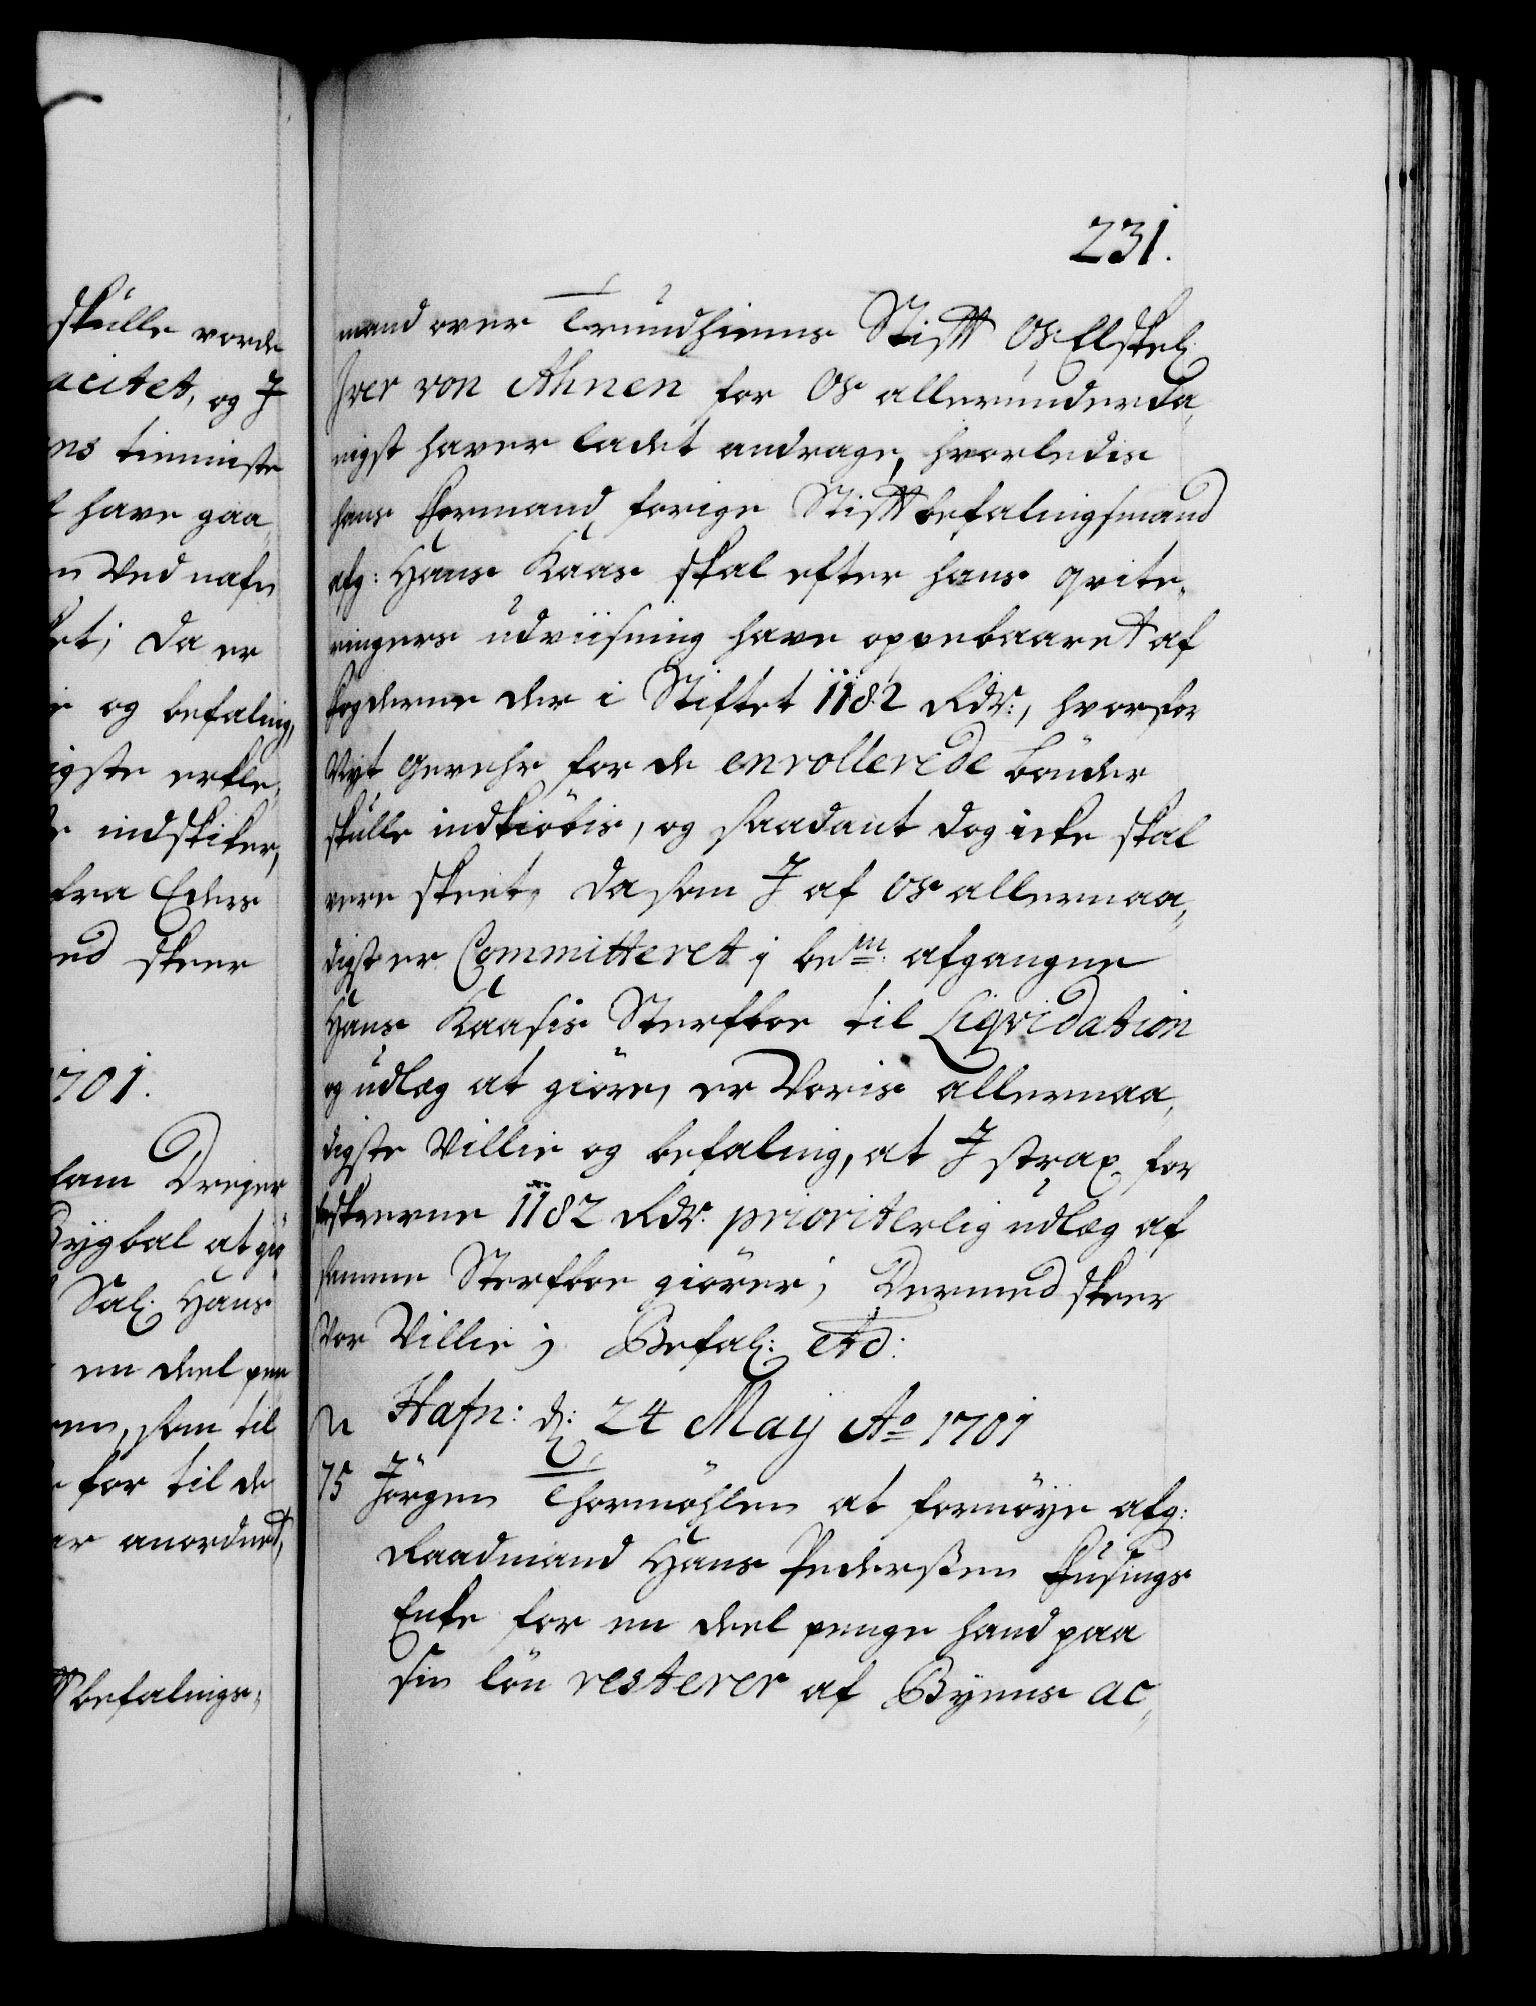 skulle vorde
acitet, og J
ens tienniste
have gaa„
n Ved nafn
et; da er
e og befaling,
igste erkle„
e indskiker,
fra Eders
ed skeer
1701.
lam Dreyer
Brygbal at giö
Sal: Hans
en deel pen
en, som til
e for til de
er anordned,
befalings„
231.
mand over Trundhiems Stifft Os Elskel:
Iver von Ahnen for Os allerunderda„
nigst haver ladet andrage, hvorledis
hans Formand forige Stifftbefalingsmand
afg: Hans Kaas skal efter hans qvite„
ringers udviisning have oppebaaret af
fogderne der i Stiftet 1182 Rdr:, hvorfor
Nyt Gevehr for de enrollerede bönder
skulle indkiöbis, og saadant dog icke skal
vere skeet, da som J af Os allernaa„
digst er Committeret j bem: afgangne
Hans Kaasis Sterfboe til Liqvidation
og udlæg at giöre, er Voris allernaa„
digste Villie og befaling, at J strax for
bestkrevne 1182 Rdr. prioriterlig udlæg af
samme Sterfboe giörer; Dermed skeer
Vor Villie; Befal: etc:
Hafn: d: 24 Maij Ao 1701
75 Jörgen Thormöhlen at fornöye afg:
Raadmand Hans Pederßen Husings
Enke for en deel penge hand paa
sin lön resterer af Byens ac„